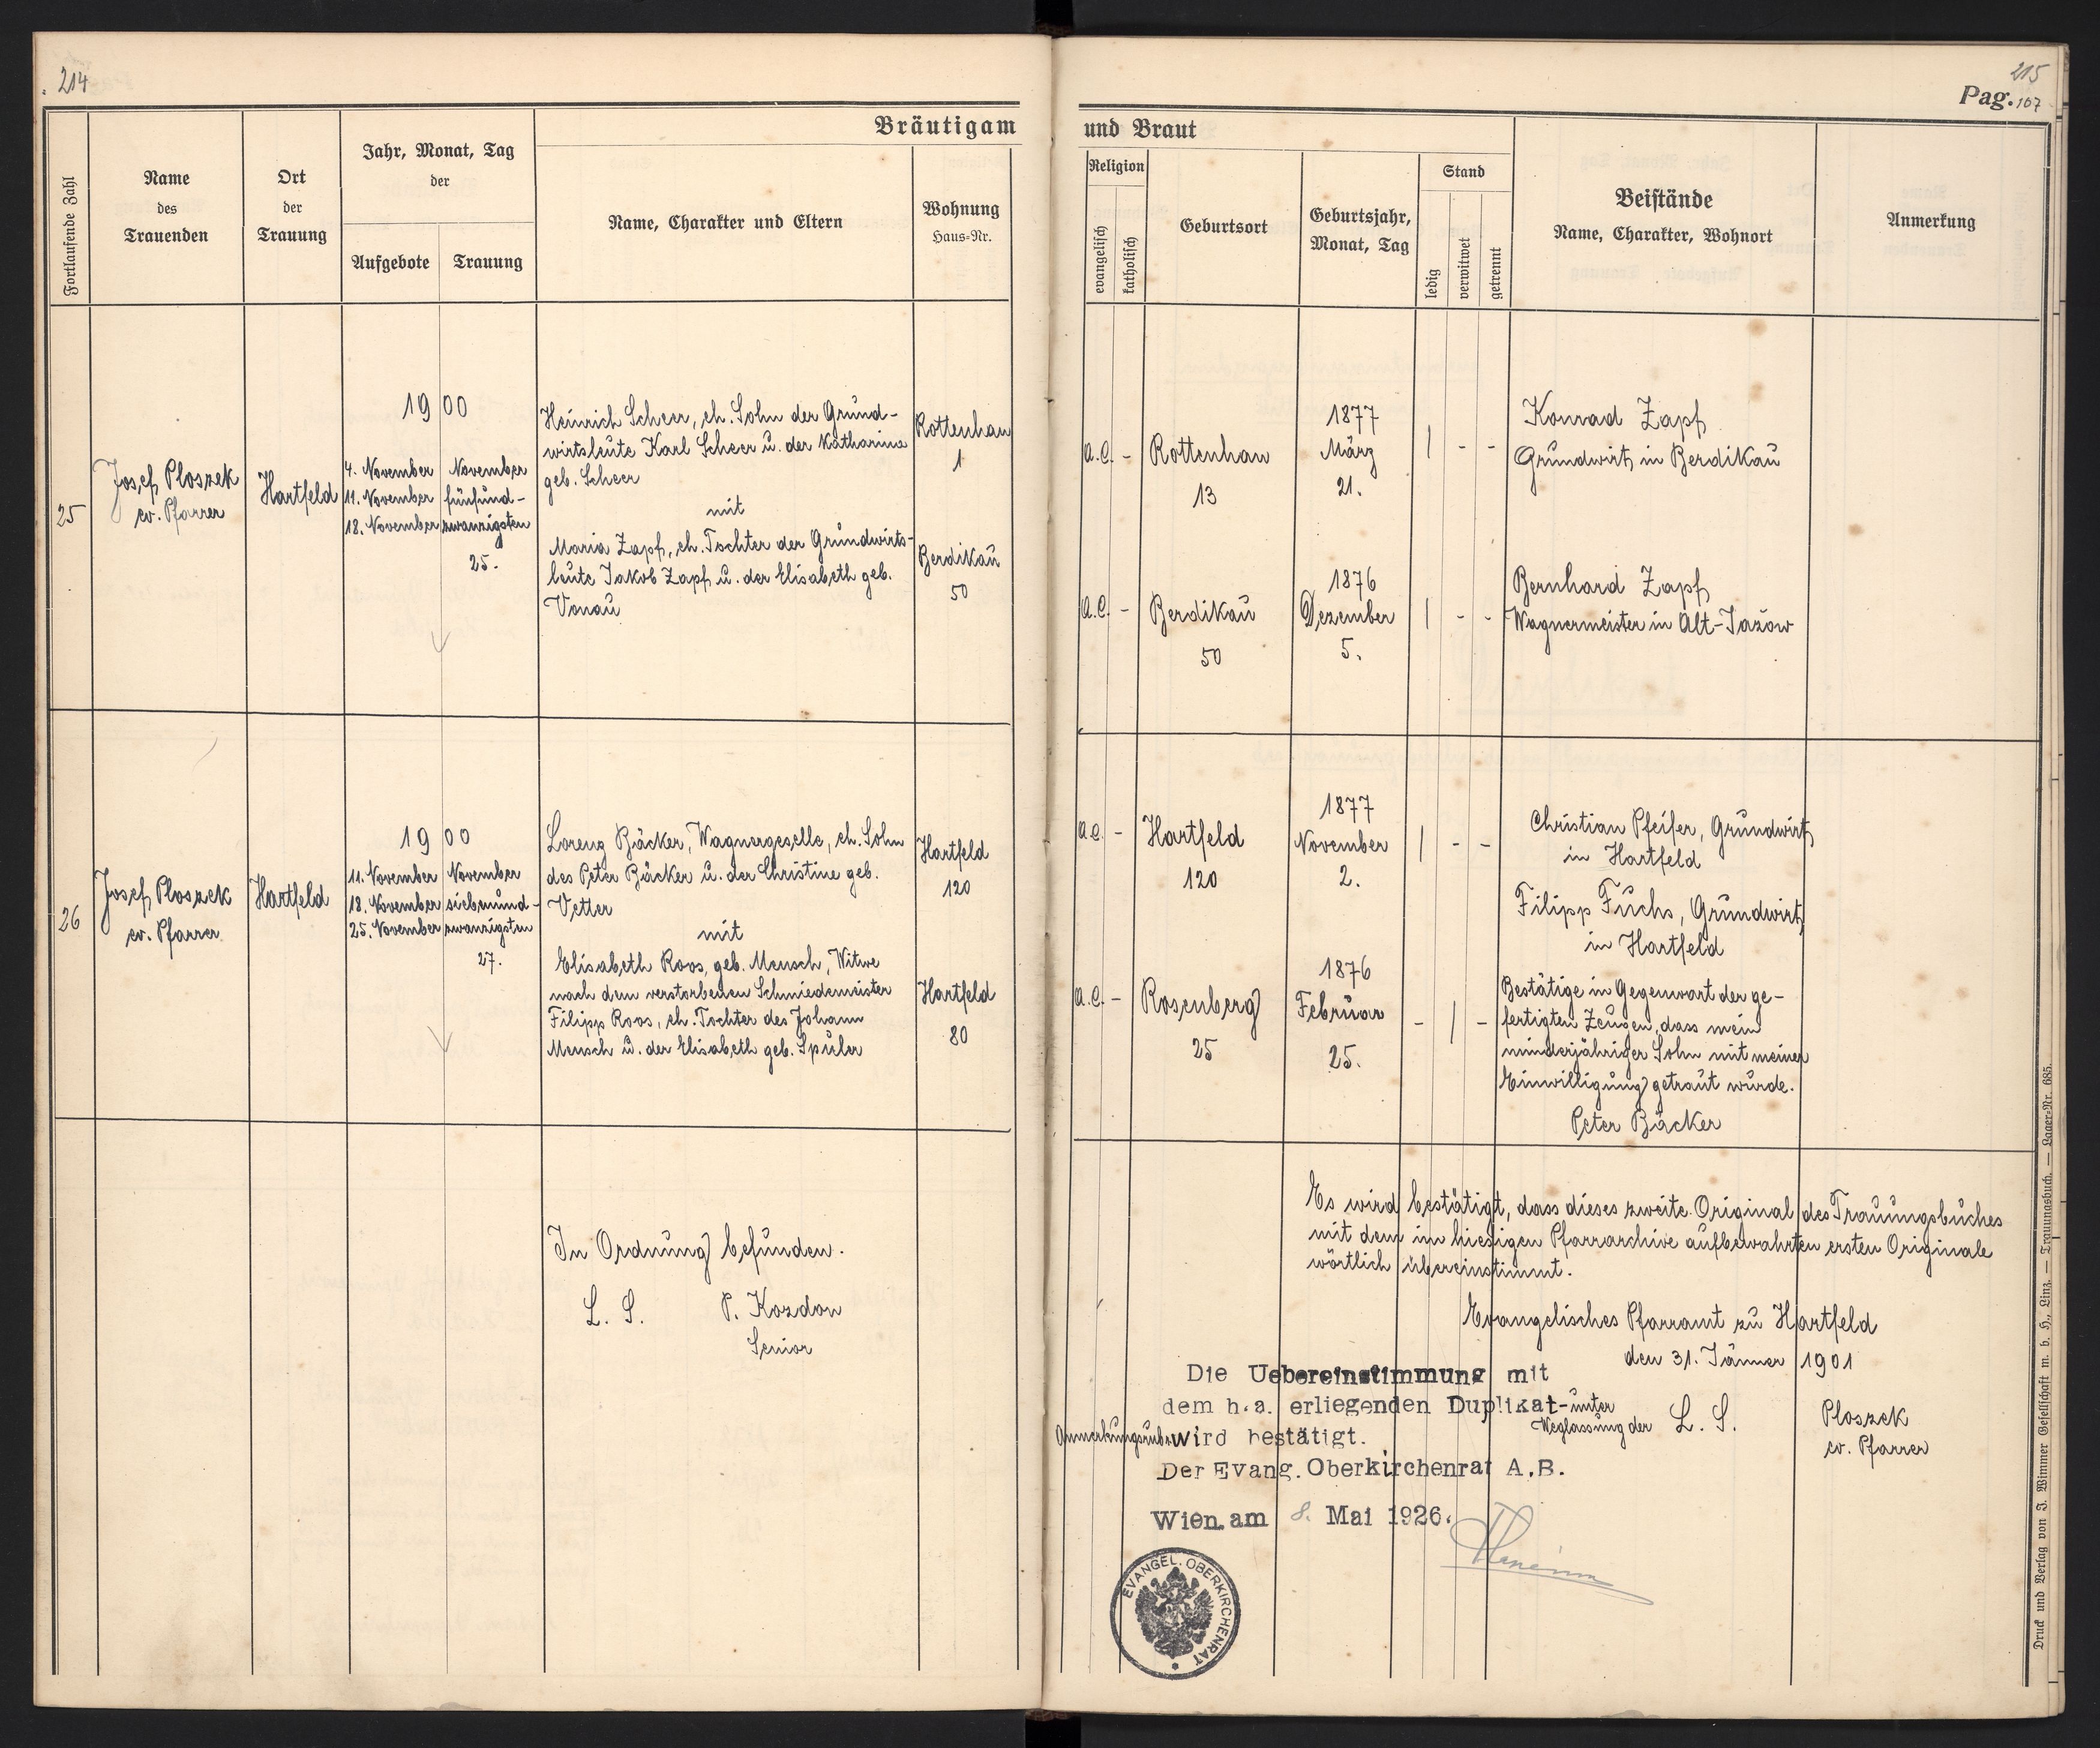 214
Bräutigam
Fortlaufende Zahl
Name
des
Trauenden
Ort
der
Trauung
Jahr, Monat, Tag
der
Aufgebote
Trauung
Name, Charakter und Eltern
Wohnung
Haus=Nr.
25
Josef Ploszek
ev. Pfarrer
Hartfeld
1900
4. November
11. November
18. November
November
fünfund-
zwanzigsten
25.
Heinrich Scheer, eh. Sohn der Grund-
wirtsleute Karl Scheer u. der Katharina
geb. Scheer
mit
Maria Zapf, eh. Tochter der Grundwirts-
leute Jakob Zapf u. der Elisabeth geb.
Vonau
Rottenhan
1
Berdikau
50
26
Josef Ploszek
ev. Pfarrer
Hartfeld
1900
11. November
18. November
25. November
November
siebenund-
zwanzigsten
27.
Lorenz Bäcker, Wagnergeselle, eh. Sohn
des Peter Bäcker u. der Christine geb.
Vetter
mit
Elisabeth Roos, geb. Mensch, Witwe
nach dem verstorbenen Schmiedemeister
Filipp Roos, eh. Tochter des Johann
Mensch u. der Elisabeth geb. Spuler
Hartfeld
120
Hartfeld
80
In Ordnung befunden.
L. S. P. Kozdon
Senior
215
Pag. 107
und Braut
Religion
evangelisch
katholisch
Geburtsort
Geburtsjahr,
Monat, Tag
Stand
ledig
verwitwet
getrennt
Beistände
Name, Charakter, Wohnort
Anmerkung
a.C. -
Rottenhan
13
1877
März
21.
| - -
Konrad Zapf
Grundwirt in Berdikau
a.C. -
Berdikau
50
1876
Dezember
5.
| - -
Bernhard Zapf
Wagnermeister in Alt-Jażów
a.C. -
Hartfeld
120
1877
November
2.
| - -
Christian Pfeifer, Grundwirt
in Hartfeld
Filipp Fuchs, Grundwirt
in Hartfeld
a.C. -
Rosenberg
25
1876
Februar
25.
- | -
Bestätige in Gegenwart der ge-
fertigten Zeugen, dass mein
minderjähriger Sohn mit meiner
Einwilligung getraut wurde.
Peter Bäcker
Es wird bestätigt, dass dieses zweite Original des Trauungsbuches
mit dem im hiesigen Pfarrarchive aufbewahrten ersten Originale
wörtlich übereinstimmt.
Evangelisches Pfarramt zu Hartfeld
den 31. Jänner 1901
L. S.
Ploszek
ev. Pfarrer
Die Uebereinstimmung mit
dem h.a. erliegenden Duplikat-unter
Weglassung der
Anmerkungsrubr. wird bestätigt.
Der Evang. Oberkirchenrat A.B.
Wien, am 8. Mai 1926.
EVANGEL. OBERKIRCHENRAT
Druck und Verlag von J. Wimmer Gesellschaft m. b. H., Linz. — Trauungsbuch. — Lager=Nr. 685.